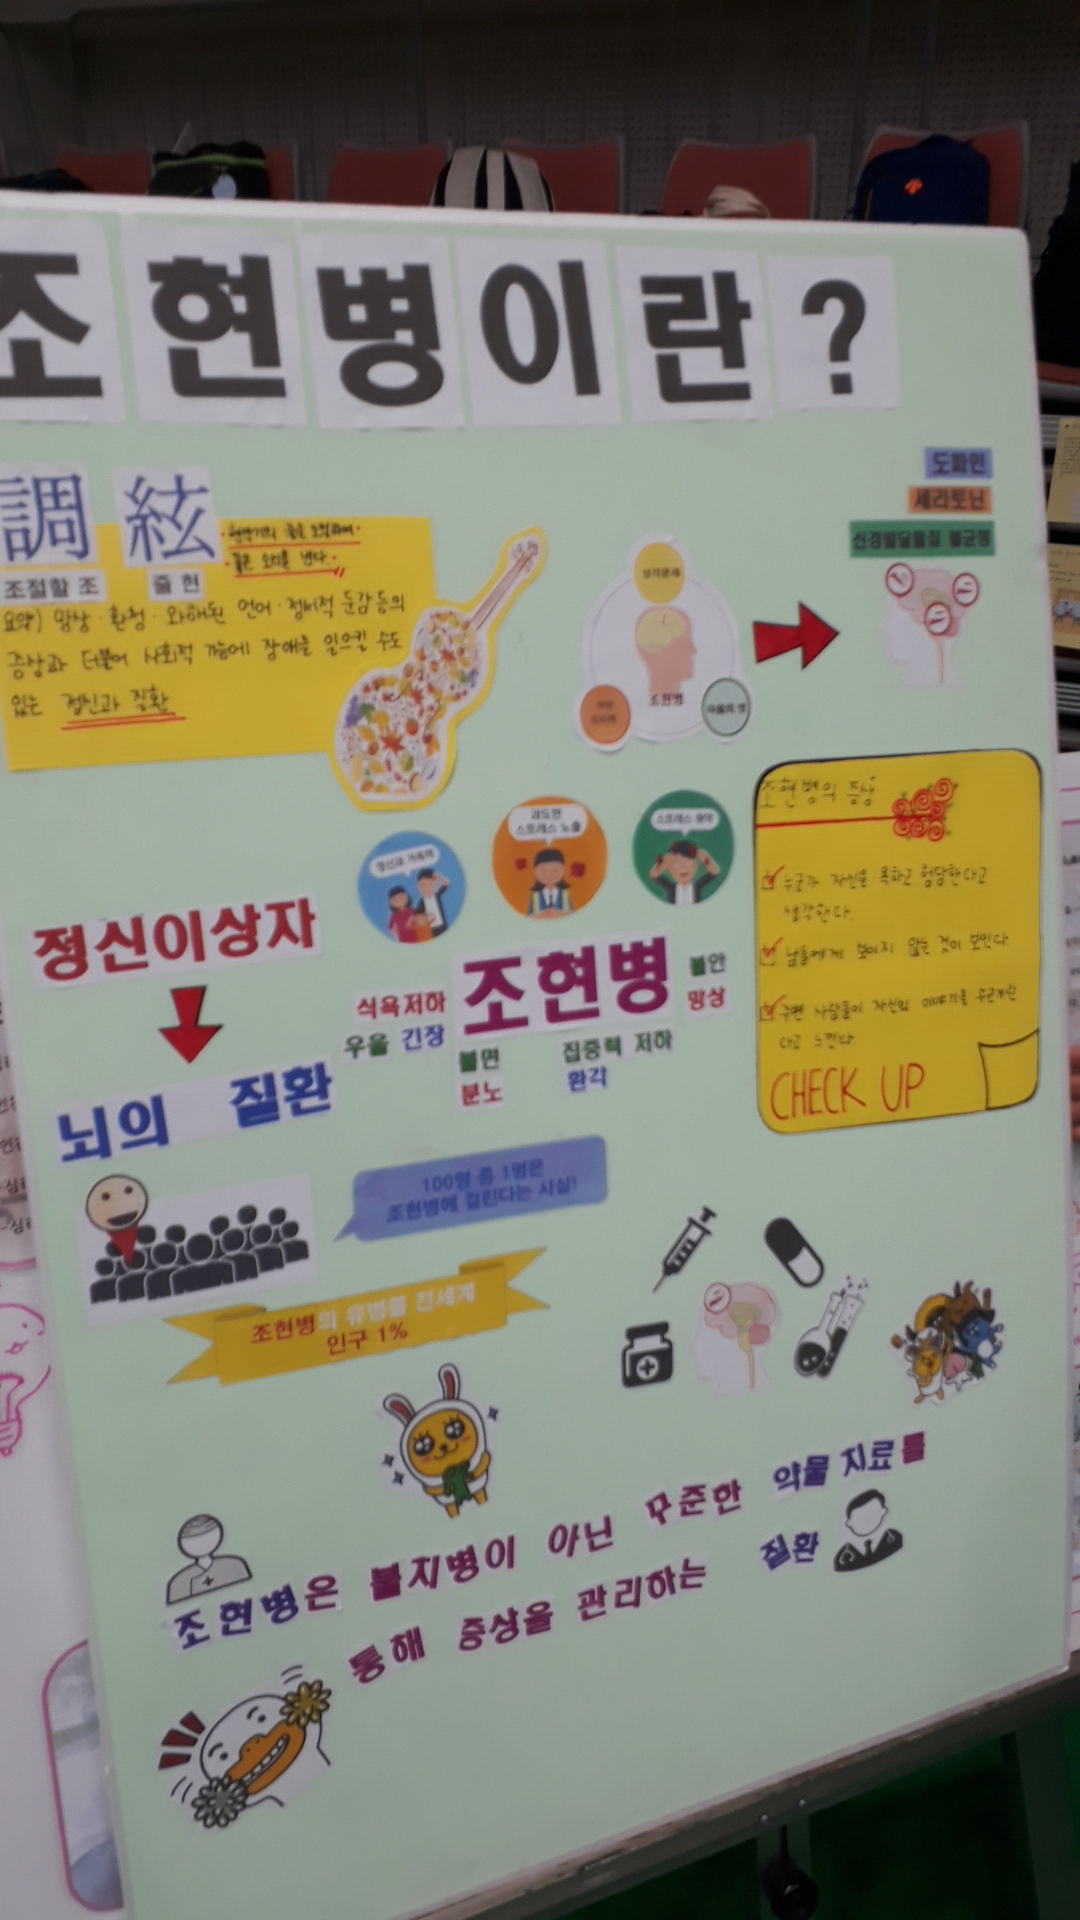 조현병이란?
調 絃
조절할 조 줄 현
현악기의 줄을 조절하여
좋은 소리를 낸다.
요약) 망상·환청·와해된 언어·정서적 둔감 등의
증상과 더불어 사회적 기능에 장애를 일으킬 수도
있는 정신과 질환
성격문제
조현병
마음의 병
도파민
세라토닌
신경발달물질 불균형
정신과 가족력
과도한
스트레스 노출
스트레스 취약
정신이상자
뇌의 질환
조현병
불안
망상
식욕저하
우울 긴장
불면
분노
집중력 저하
환각
조현병의 증상
누군가 자신을 욕하고 험담한다고
생각한다.
남들에게 보이지 않는 것이 보인다.
주변 사람들이 자신의 이야기를 수근거린
다고 느낀다.
CHECK UP
100명 중 1명은
조현병에 걸린다는 사실!
조현병의 유병률 전세계
인구 1%
조현병은 불치병이 아닌 꾸준한 약물 치료를
통해 증상을 관리하는 질환